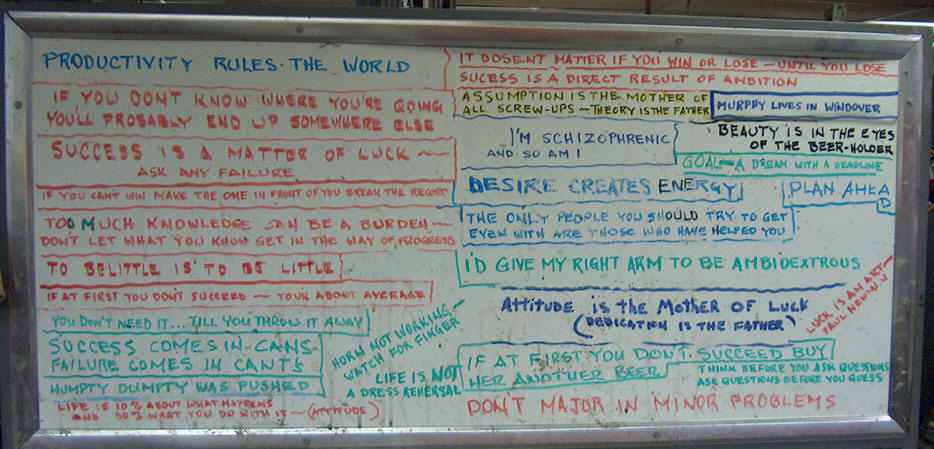 PRODUCTIVITY RULES THE WORLD
IF YOU DONT KNOW WHERE YOU'RE GOING
YOU'LL PROBABLY END UP SOMEWHERE ELSE
SUCCESS IS A MATTER OF LUCK —
ASK ANY FAILURE
IF YOU CAN'T WIN - MAKE THE ONE IN FRONT OF YOU BREAK THE RECORD
TOO MUCH KNOWLEDGE CAN BE A BURDEN —
DON'T LET WHAT YOU KNOW GET IN THE WAY OF PROGRESS
TO BELITTLE IS TO BE LITTLE
IF AT FIRST YOU DON'T SUCCEED — YOUR ABOUT AVERAGE
YOU DON'T NEED IT... TILL YOU THROW IT AWAY
SUCCESS COMES IN CANS-
FAILURE COMES IN CANT'S
HUMPTY DUMPTY WAS PUSHED
LIFE IS 10% ABOUT WHAT HAPPENS
AND 90% WHAT YOU DO WITH IT — (ATTITUDE)
HORN NOT WORKING
WATCH FOR FINGER
LIFE IS NOT
A DRESS REHERSAL
IT DOSENT MATTER IF YOU WIN OR LOSE — UNTIL YOU LOSE
SUCESS IS A DIRECT RESULT OF AMBITION
ASSUMPTION IS THE MOTHER OF
ALL SCREW-UPS — THEORY IS THE FATHER
MURPHY LIVES IN WINDOVER
I'M SCHIZOPHRENIC
AND SO AM I
BEAUTY IS IN THE EYES
OF THE BEER-HOLDER
GOAL — A DREAM WITH A DEADLINE
DESIRE CREATES ENERGY
PLAN AHEA
D
THE ONLY PEOPLE YOU SHOULD TRY TO GET
EVEN WITH ARE THOSE WHO HAVE HELPED YOU
I'D GIVE MY RIGHT ARM TO BE AMBIDEXTROUS
Attitude is the Mother of Luck
(DEDICATION IS THE FATHER)
LUCK IS AN ART —
PAUL NEWMAN
IF AT FIRST YOU DON'T SUCCEED BUY
HER ANOTHER BEER
THINK BEFORE YOU ASK QUESTIONS
ASK QUESTIONS BEFORE YOU GUESS
DON'T MAJOR IN MINOR PROBLEMS